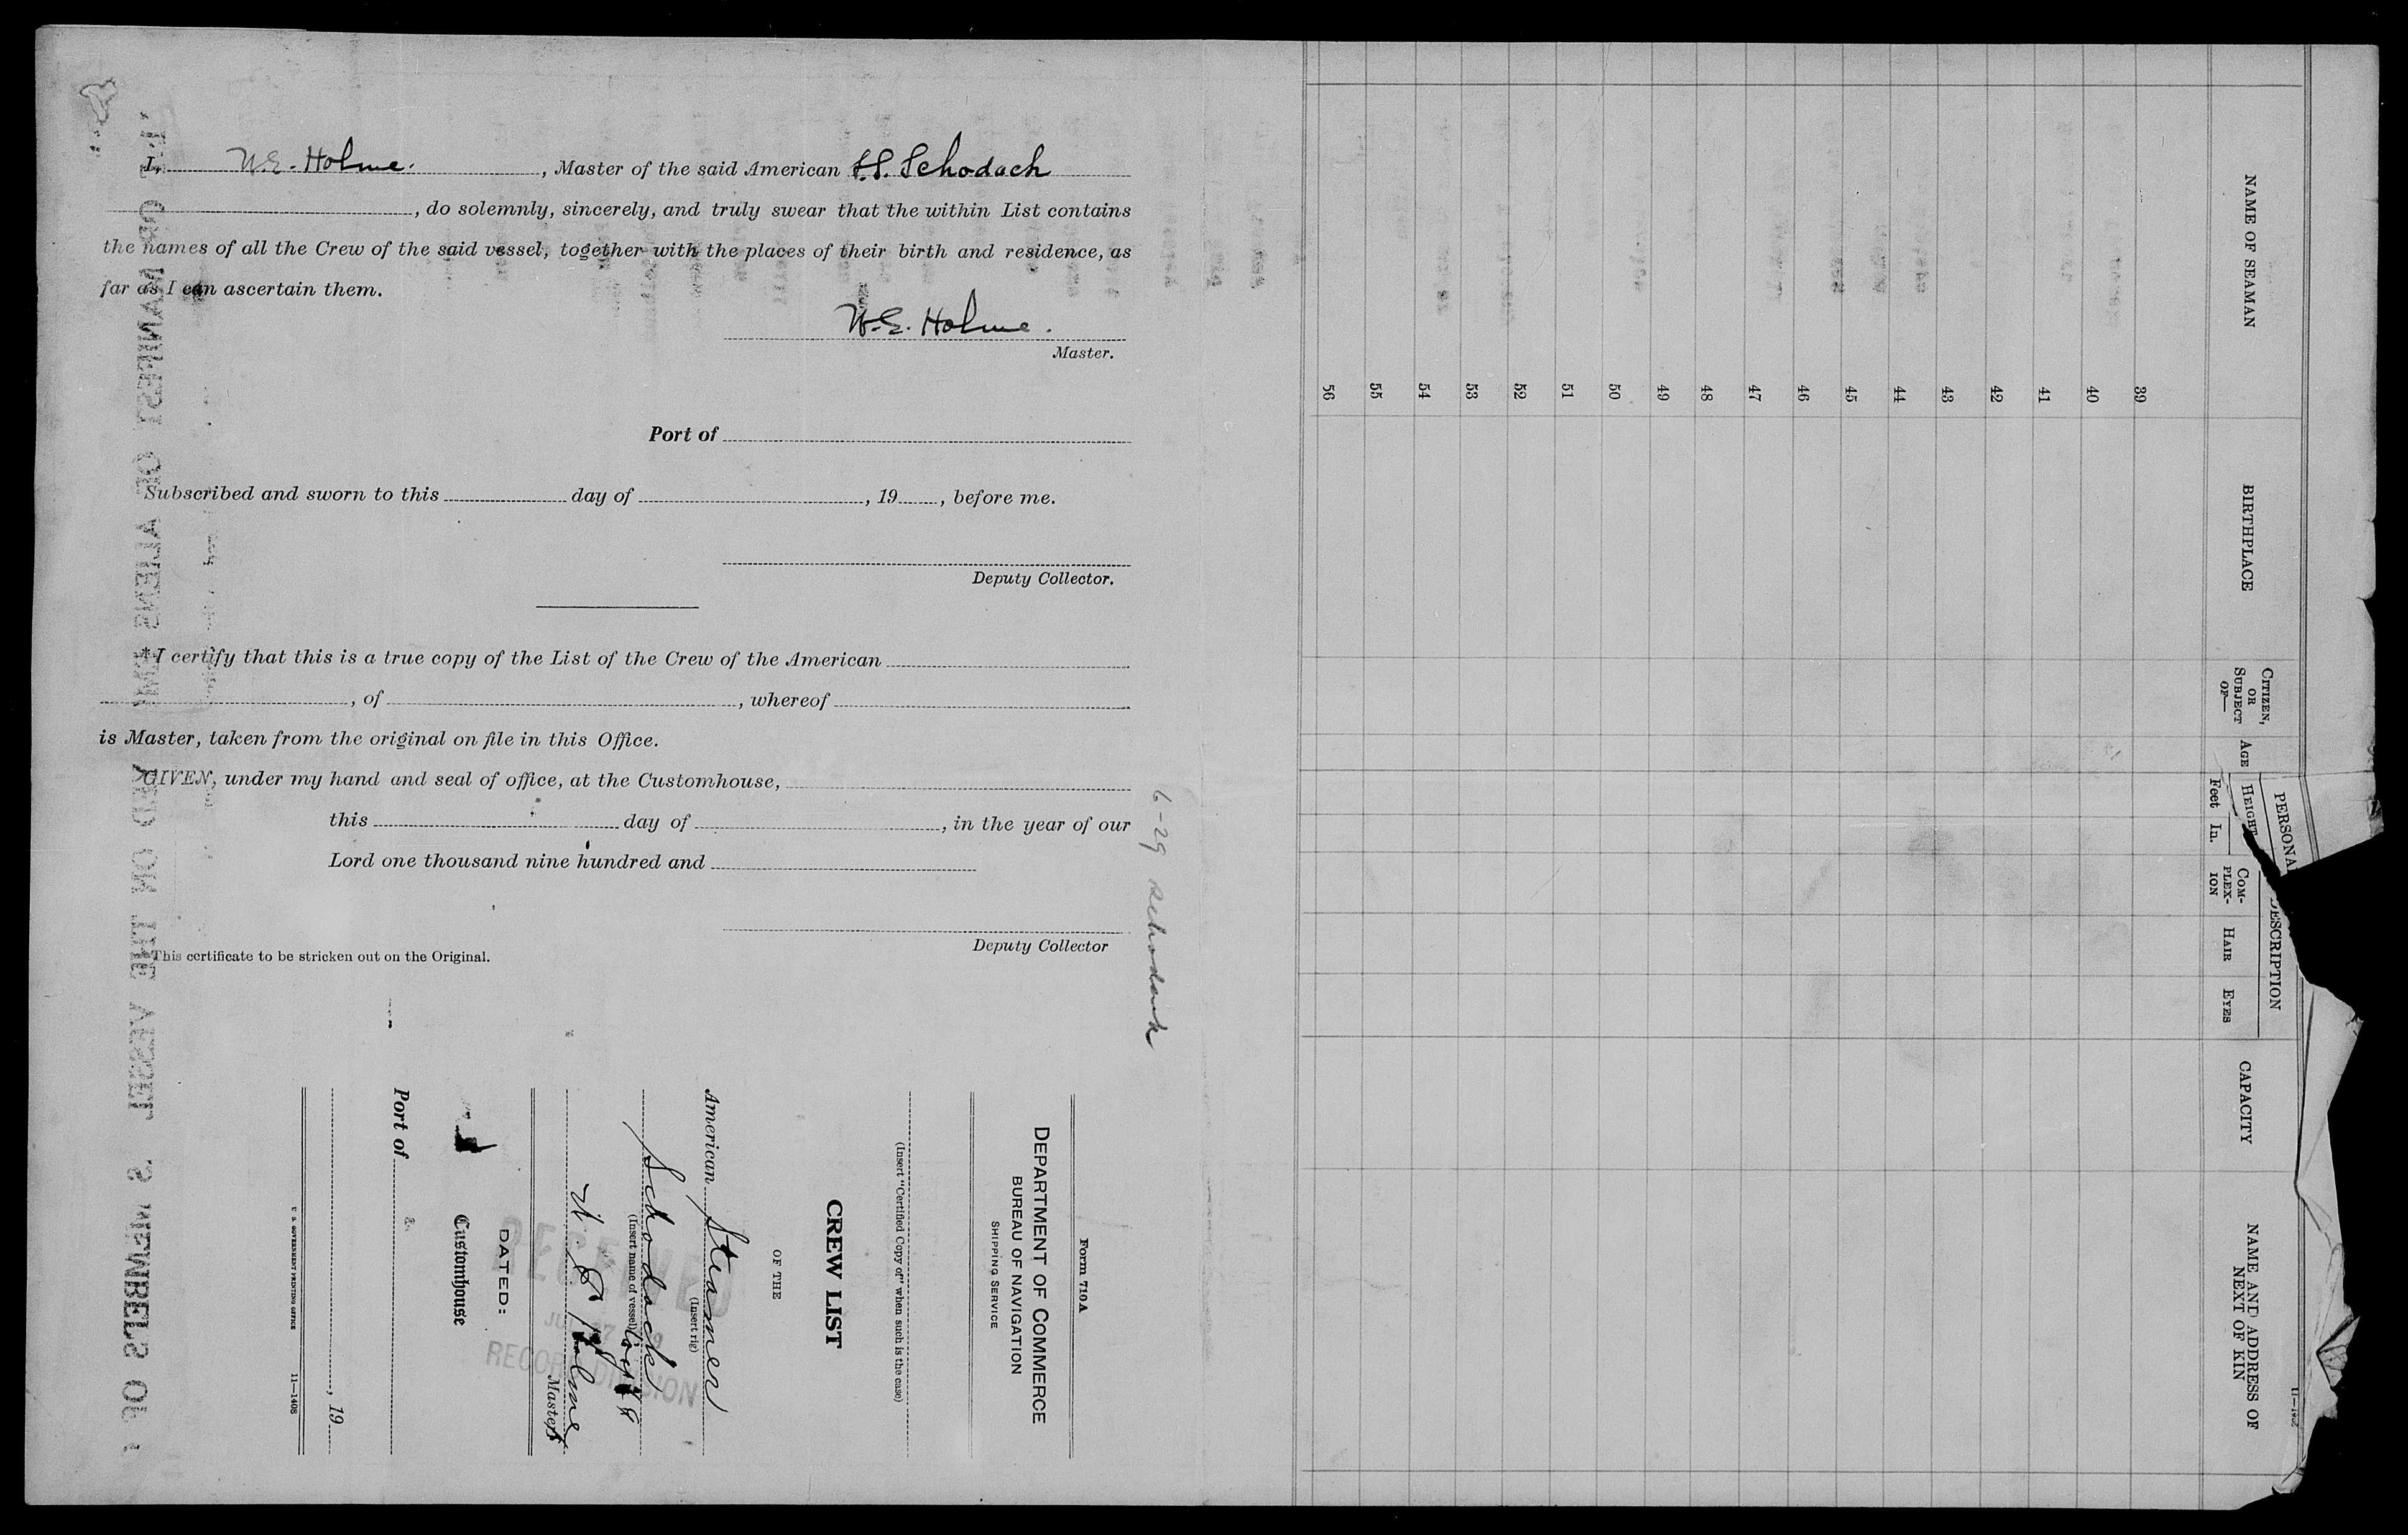 I, W.E. Holme. , Master of the said American S.S. Schodack
, do solemnly, sincerely, and truly swear that the within List contains
the names of all the Crew of the said vessel, together with the places of their birth and residence, as
far as I can ascertain them.
W.E. Holme.
Master.
Port of
Subscribed and sworn to this day of , 19 , before me.
Deputy Collector.
*I certify that this is a true copy of the List of the Crew of the American
, of , whereof
is Master, taken from the original on file in this Office.
GIVEN, under my hand and seal of office, at the Customhouse,
this day of , in the year of our
Lord one thousand nine hundred and
Deputy Collector
This certificate to be stricken out on the Original.
6-29 Schodack
Form 710A
DEPARTMENT OF COMMERCE
BUREAU OF NAVIGATION
SHIPPING SERVICE
(Insert "Certified Copy of" when such is the case)
CREW LIST
OF THE
American Steamer
(Insert rig)
Schodack
(Insert name of vessel)
W. E. Holme
Master
RECEIVED
RECORD DIVISION
DATED:
Customhouse
Port of
, 19
U. S. GOVERNMENT PRINTING OFFICE 11—1406
11—1406
NAME OF SEAMAN
BIRTHPLACE
CITIZEN, OR SUBJECT OF—
AGE
PERSONAL DESCRIPTION
HEIGHT
Feet In.
COM-PLEX-ION
HAIR
EYES
CAPACITY
NAME AND ADDRESS OF NEXT OF KIN
39
40
41
42
43
44
45
46
47
48
49
50
51
52
53
54
55
56